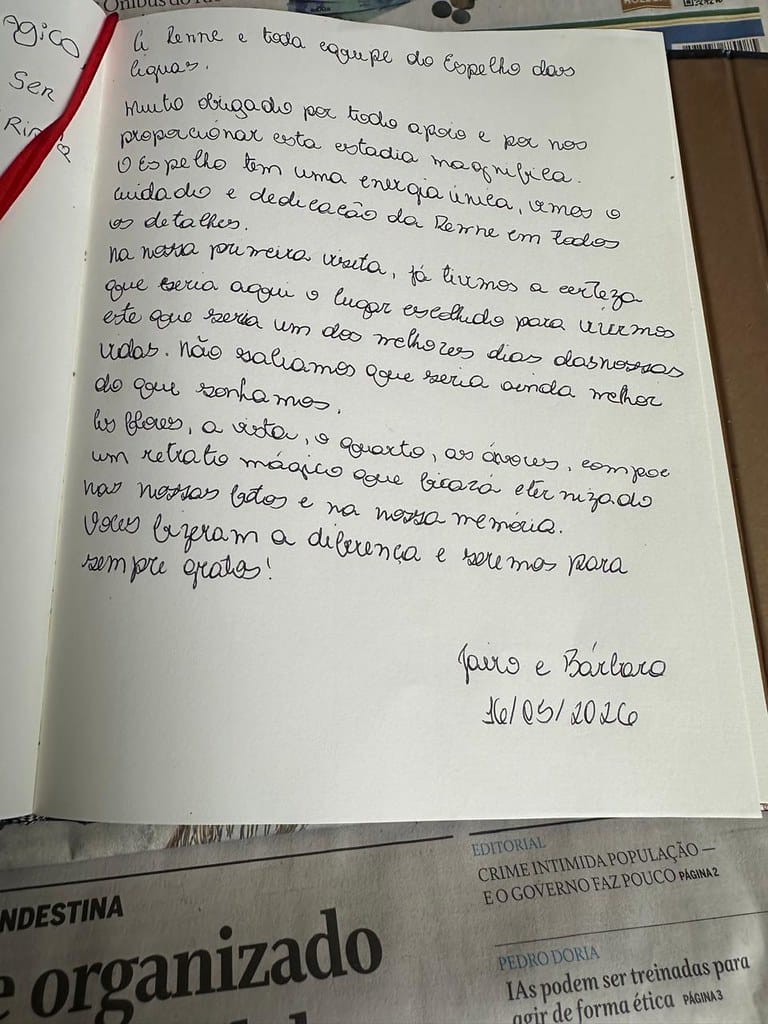 Ônibus do
Agico
Ser
À Renne e toda equipe do Espelho das
águas.
Muito obrigado por todo apoio e por nos
proporcionar esta estadia magnifica.
O Espelho tem uma energia única, vemos o
cuidado e dedicação da Renne em todos
os detalhes.
Na nossa primeira visita, já tivemos a certeza
que seria aqui o lugar escolhido para vivermos
este que seria um dos melhores dias das nossas
vidas. Não sabiamos que seria ainda melhor
do que sonhamos.
As flores, a vista, o quarto, as árvores, compoe
um retrato mágico que ficará eternizado
nas nossas fotos e na nossa memória.
Voces fizeram a diferença e seremos para
sempre gratos!
Jairo e Bárbara
16/05/2026
NDESTINA
e organizado
EDITORIAL
CRIME INTIMIDA POPULAÇÃO —
E O GOVERNO FAZ POUCO PÁGINA 2
PEDRO DORIA
IAs podem ser treinadas para
agir de forma ética PÁGINA 3